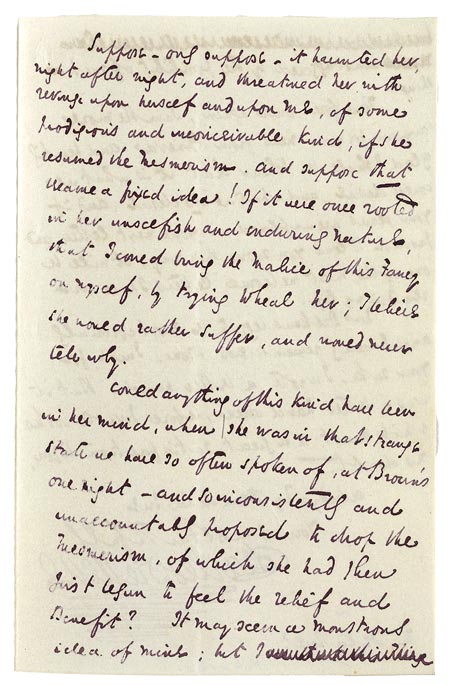 Suppose - only suppose - it haunted her,
night after night, and threatened her with
revenge upon herself and upon me, of some
prodigious and inconceivable kind, if she
resumed the Mesmerism. And suppose that
became a fixed idea! If it were once rooted
in her unselfish and enduring nature,
that I could bring the Malice of this Fancy
on myself, by trying to heal her; I believe
she would rather suffer, and would never
tell why.
Could anything of this kind have been
in her mind, when she was in that strange
state we have so often spoken of, at Brown's
one night - and so inconsistently and
unaccountably proposed to drop the
Mesmerism, of which she had then
just begun to feel the relief and
Benefit? It may seem a monstrous
idea of mine; but I